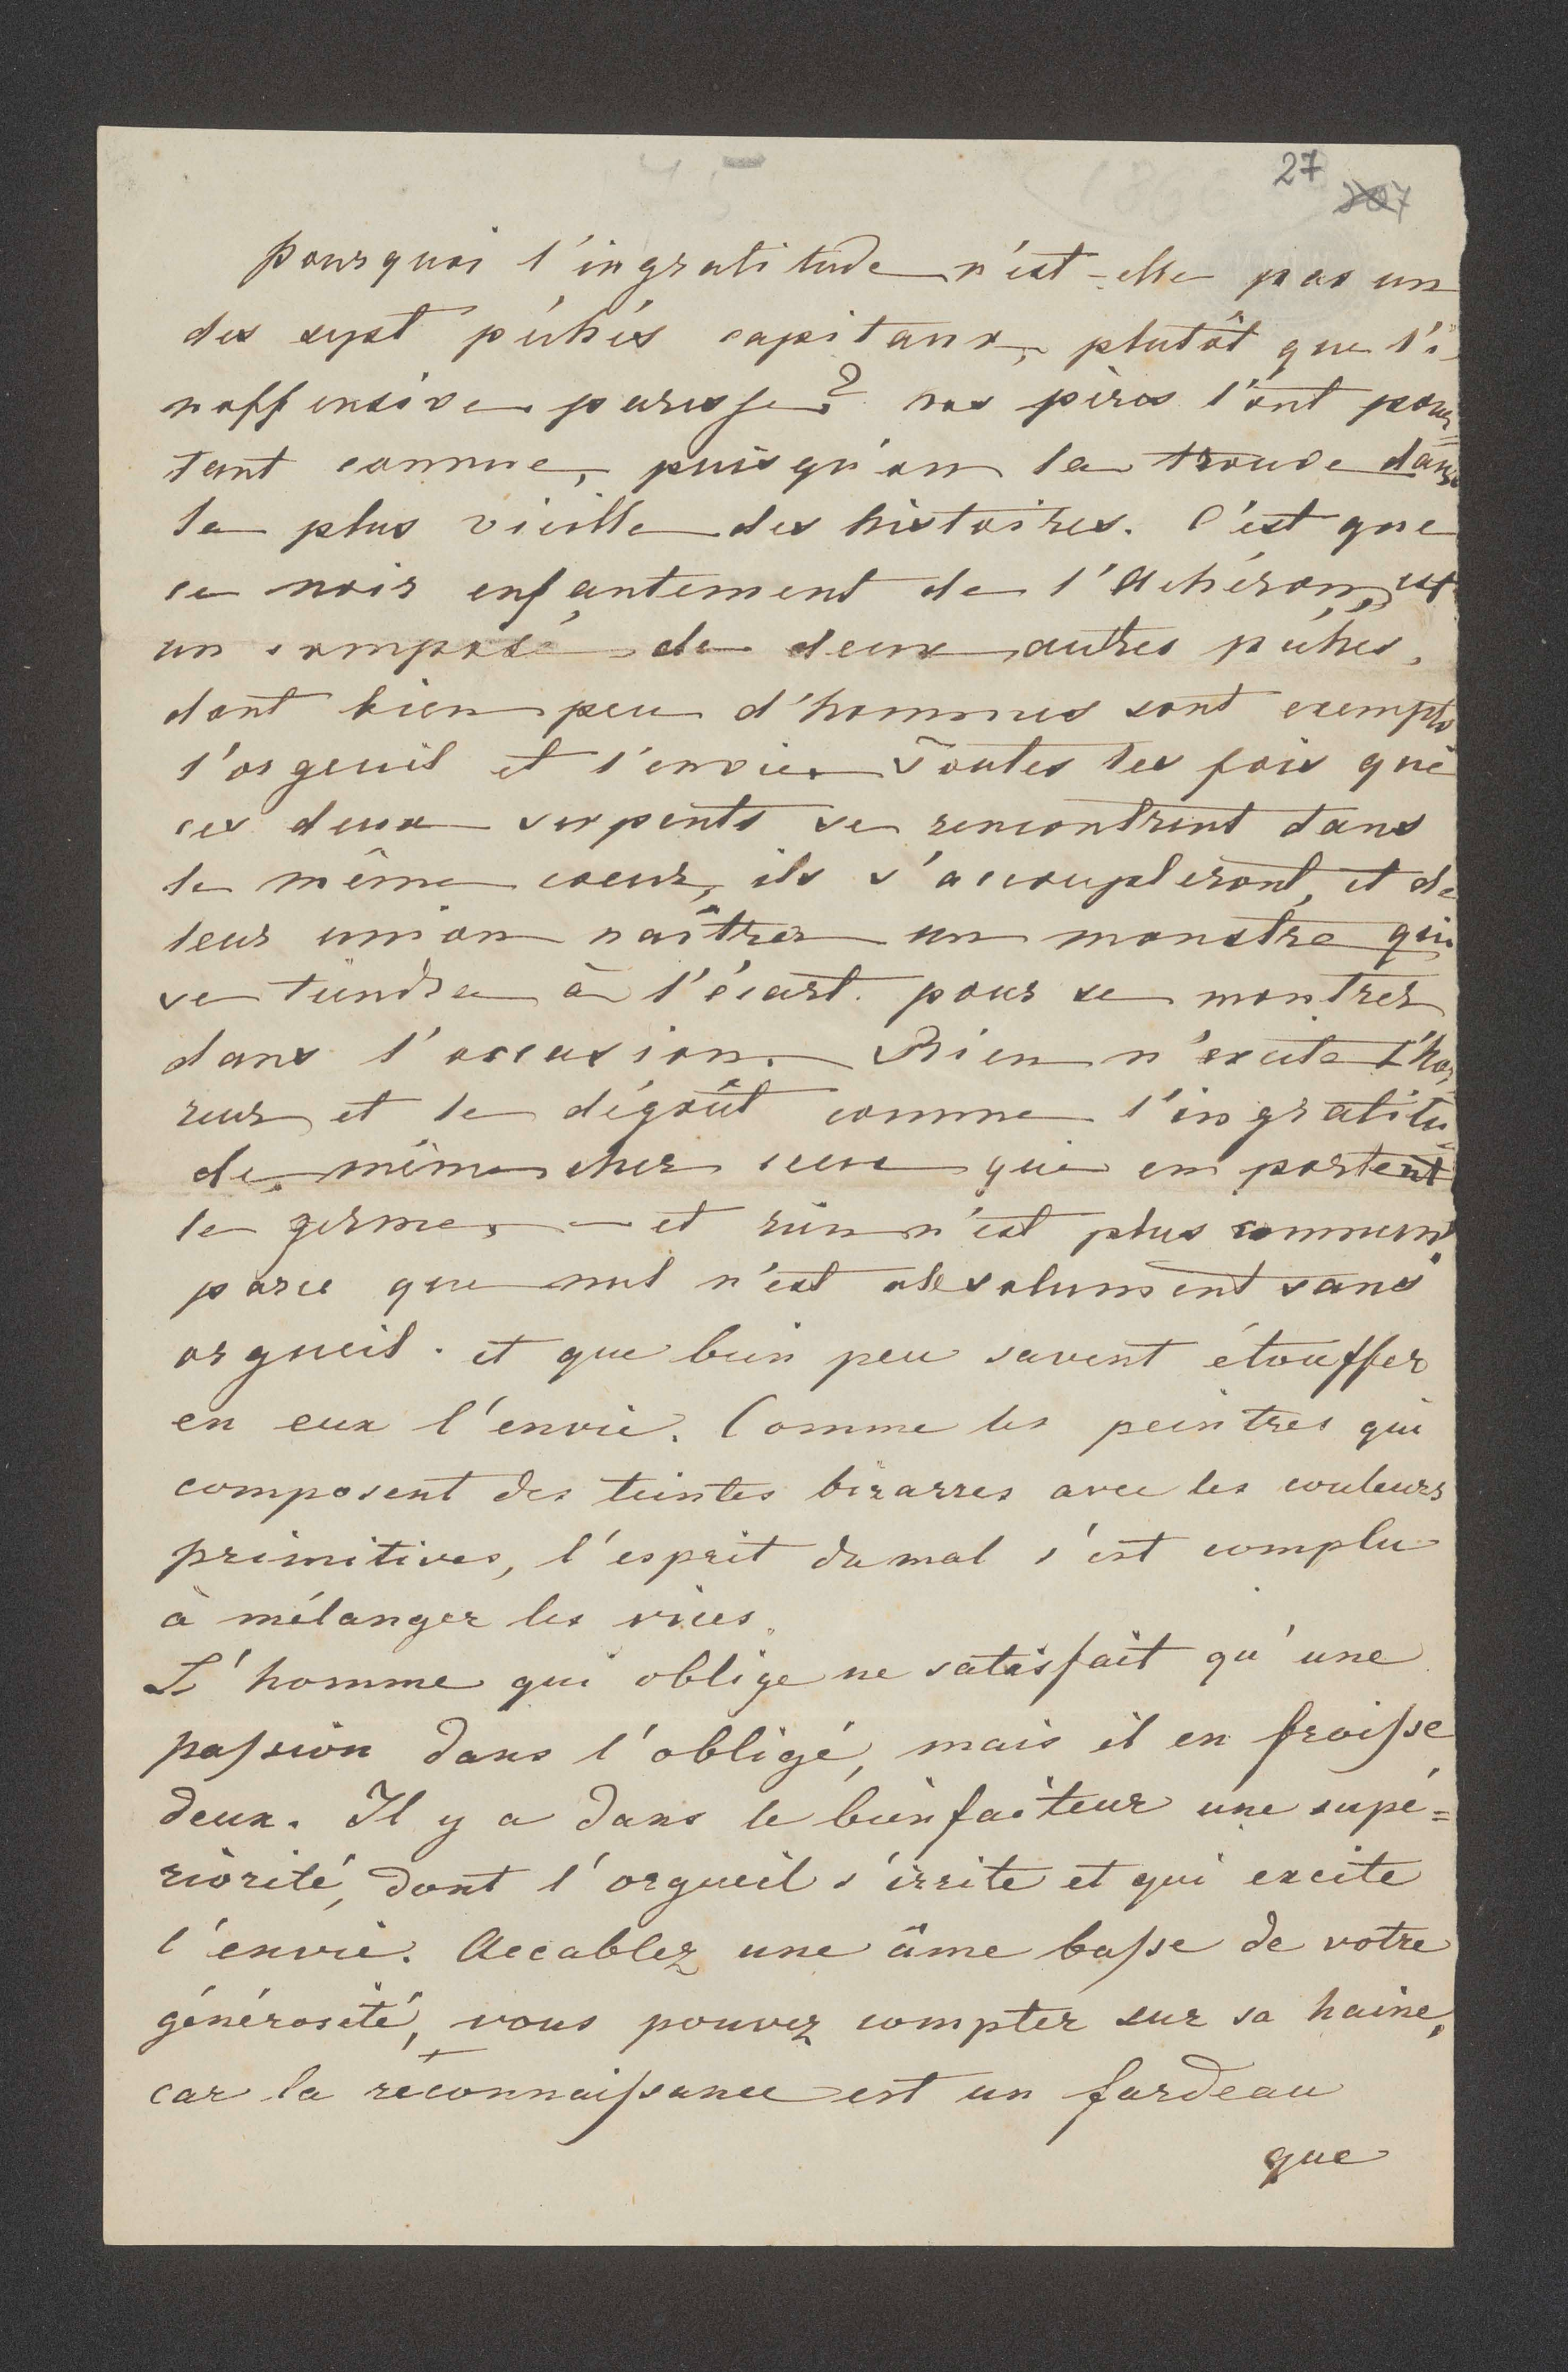 27
207
Pourquoi l'ingratitude n'est-elle pas un
des sept péchés capitaux, plutôt que l'i-
noffensive paresse? nos pères l'ont pour-
tant connue, puisqu'on la trouve dans
la plus vieille des histoires. C'est que
ce noir enfantement de l'Achéron, est
un composé de deux autres péchés,
dont bien peu d'hommes sont exempts
l'orgeuil et l'envie. Toutes les fois que
ces deux serpents se rencontrent dans
le même coeur, ils s'accoupleront, et de
leur union naîtra un monstre qui
se tiendra à l'écart pour se montrer
dans l'occasion. Rien n'excite l'hor-
reur et le dégoût comme l'ingratitu-
de, même chez ceux qui en portent
le germe, - et rien n'est plus commun,
parce que nul n'est absolument sans
orgueil. et que bien peu savent étouffer
en eux l'envie. Comme les peintres qui
composent des teintes bizarres avec les couleurs
primitives, l'esprit du mal s'est complu
à mélanger les vices.
L'homme qui oblige ne satisfait qu'une
passion dans l'obligé, mais il en froisse
deux. Il y a dans le bienfaiteur une supé=
riorité, dont l'orgueil s'irrite et qui excite
l'envie. Accablez une âme basse de votre
générosité, vous pouvez compter sur sa haine,
car la reconnaissance est un fardeau
que